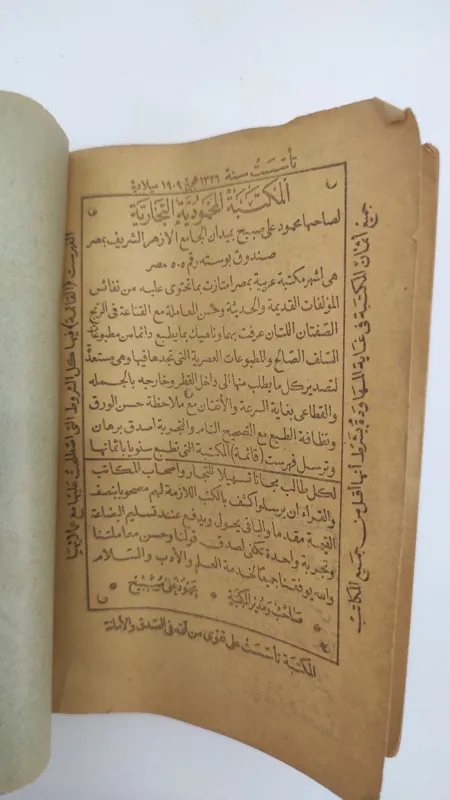 تأسست سنة ١٣٢٦ هجرية ١٩٠٩ ميلادية
المكتبة المحمودية التجارية
لصاحبها محمود على صبيح بميدان الجامع الازهر الشريف بمصر
صندوق بوسته رقم ٥٠٥ مصر
هى أشهر مكتبة عربية بمصر امتازت بما تحتوى عليه من نفائس
المؤلفات القديمة والحديثة وحسن المعاملة مع القناعة فى الربح
الصفتان اللتان عرفت بهما وناهيك بما يطبع دائما من مطبوعات
السلف الصالح والمطبوعات العصرية التى تجدها فيها وهى مستعدة
لتصدير كل ما يطلب منها الى داخل القطر وخارجه بالجمله
والقطاعى بغاية السرعة والأتقان مع ملاحظة حسن الورق
ونظافة الطبع مع التصحيح التام والتجربة أصدق برهان
وترسل فهرست (قائمة) المكتبة التى تطبع سنويا بأثمانها
لكل طالب مجانا تسهيلا للتجار وأصحاب المكاتب
والقراء ان يرسلوا كشف بالكتب اللازمة لهم مصحوبا بنصف
القيمة مقدما والباقى يحول ويدفع عند تسليم البضاعة
وتجربة واحدة تكفى لصدق قولنا وحسن معاملتنا
والله يوفقنا جميعا لخدمة العلم والأدب والسلام
صاحب ومدير المكتبة
محمود على صبيح
المكتبة تأسست على تقوى من الله فى الصدق والأمانة
جميع أثمان المكتبة فى غاية المهاودة بشرط أنها أقل من جميع المكاتب
الفهرست (القائمة) فيها كل الشروط التى اصطلحت عليها مع عملائها